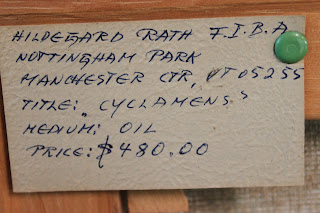 HILDEGARD RATH F.I.B.A
NOTTINGHAM PARK
MANCHESTER CTR, VT 05255
TITLE: "CYCLAMENS"
MEDIUM: OIL
PRICE: $480.00